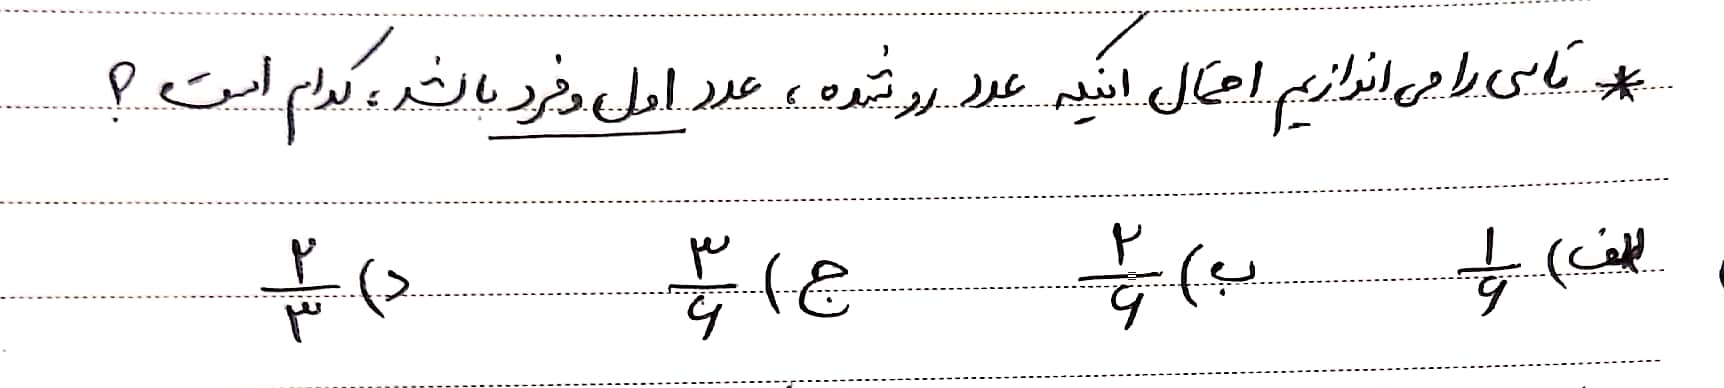 * تاسی را می اندازیم احتمال اینکه عدد رو شده ، عدد اول و فرد باشد ، کدام است ؟
الف) ۱/۶ ب) ۲/۶ ج) ۳/۶ د) ۲/۳